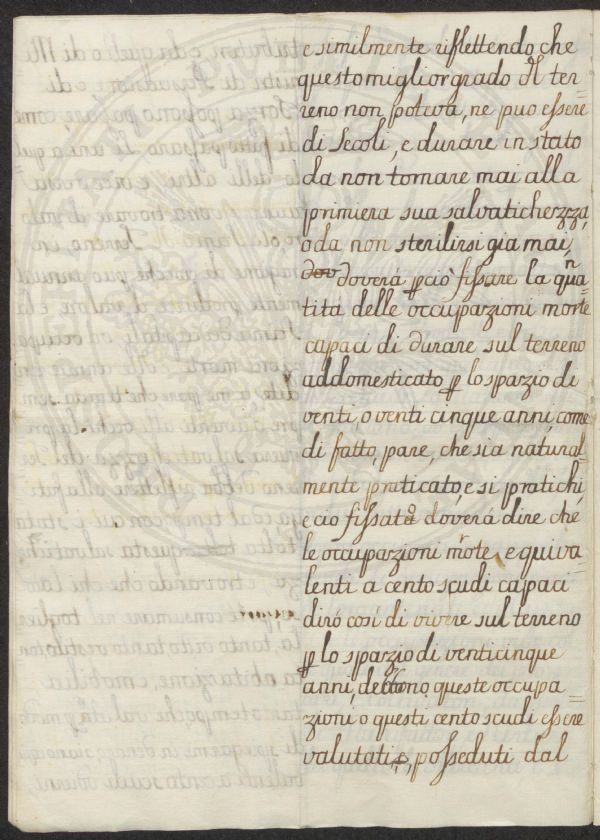 e similmente riflettendo, che
questo miglior grado di ter=
reno non poteva, ne può essere
di secoli, e durare in stato
da non tornare mai alla
primiera sua salvaticherzza,
o da non sterilirsi già mai,
dov doverà p ciò fissare la qua=
tità delle occupazioni morte
capaci di durare sul terreno
addomesticato p lo spazio di
venti, o venti cinque anni, come
di fatto, pare, che sia natural=
mente praticato, e si pratichi,
e ciò fissato doverà dire che
le occupazioni morte equiva=
lenti a cento scudi capaci
dirò così di vivere sul terreno
p lo spazio di venticinque
anni, debbono queste occupa=
zioni o questi cento scudi essere
valutati, posseduti dal